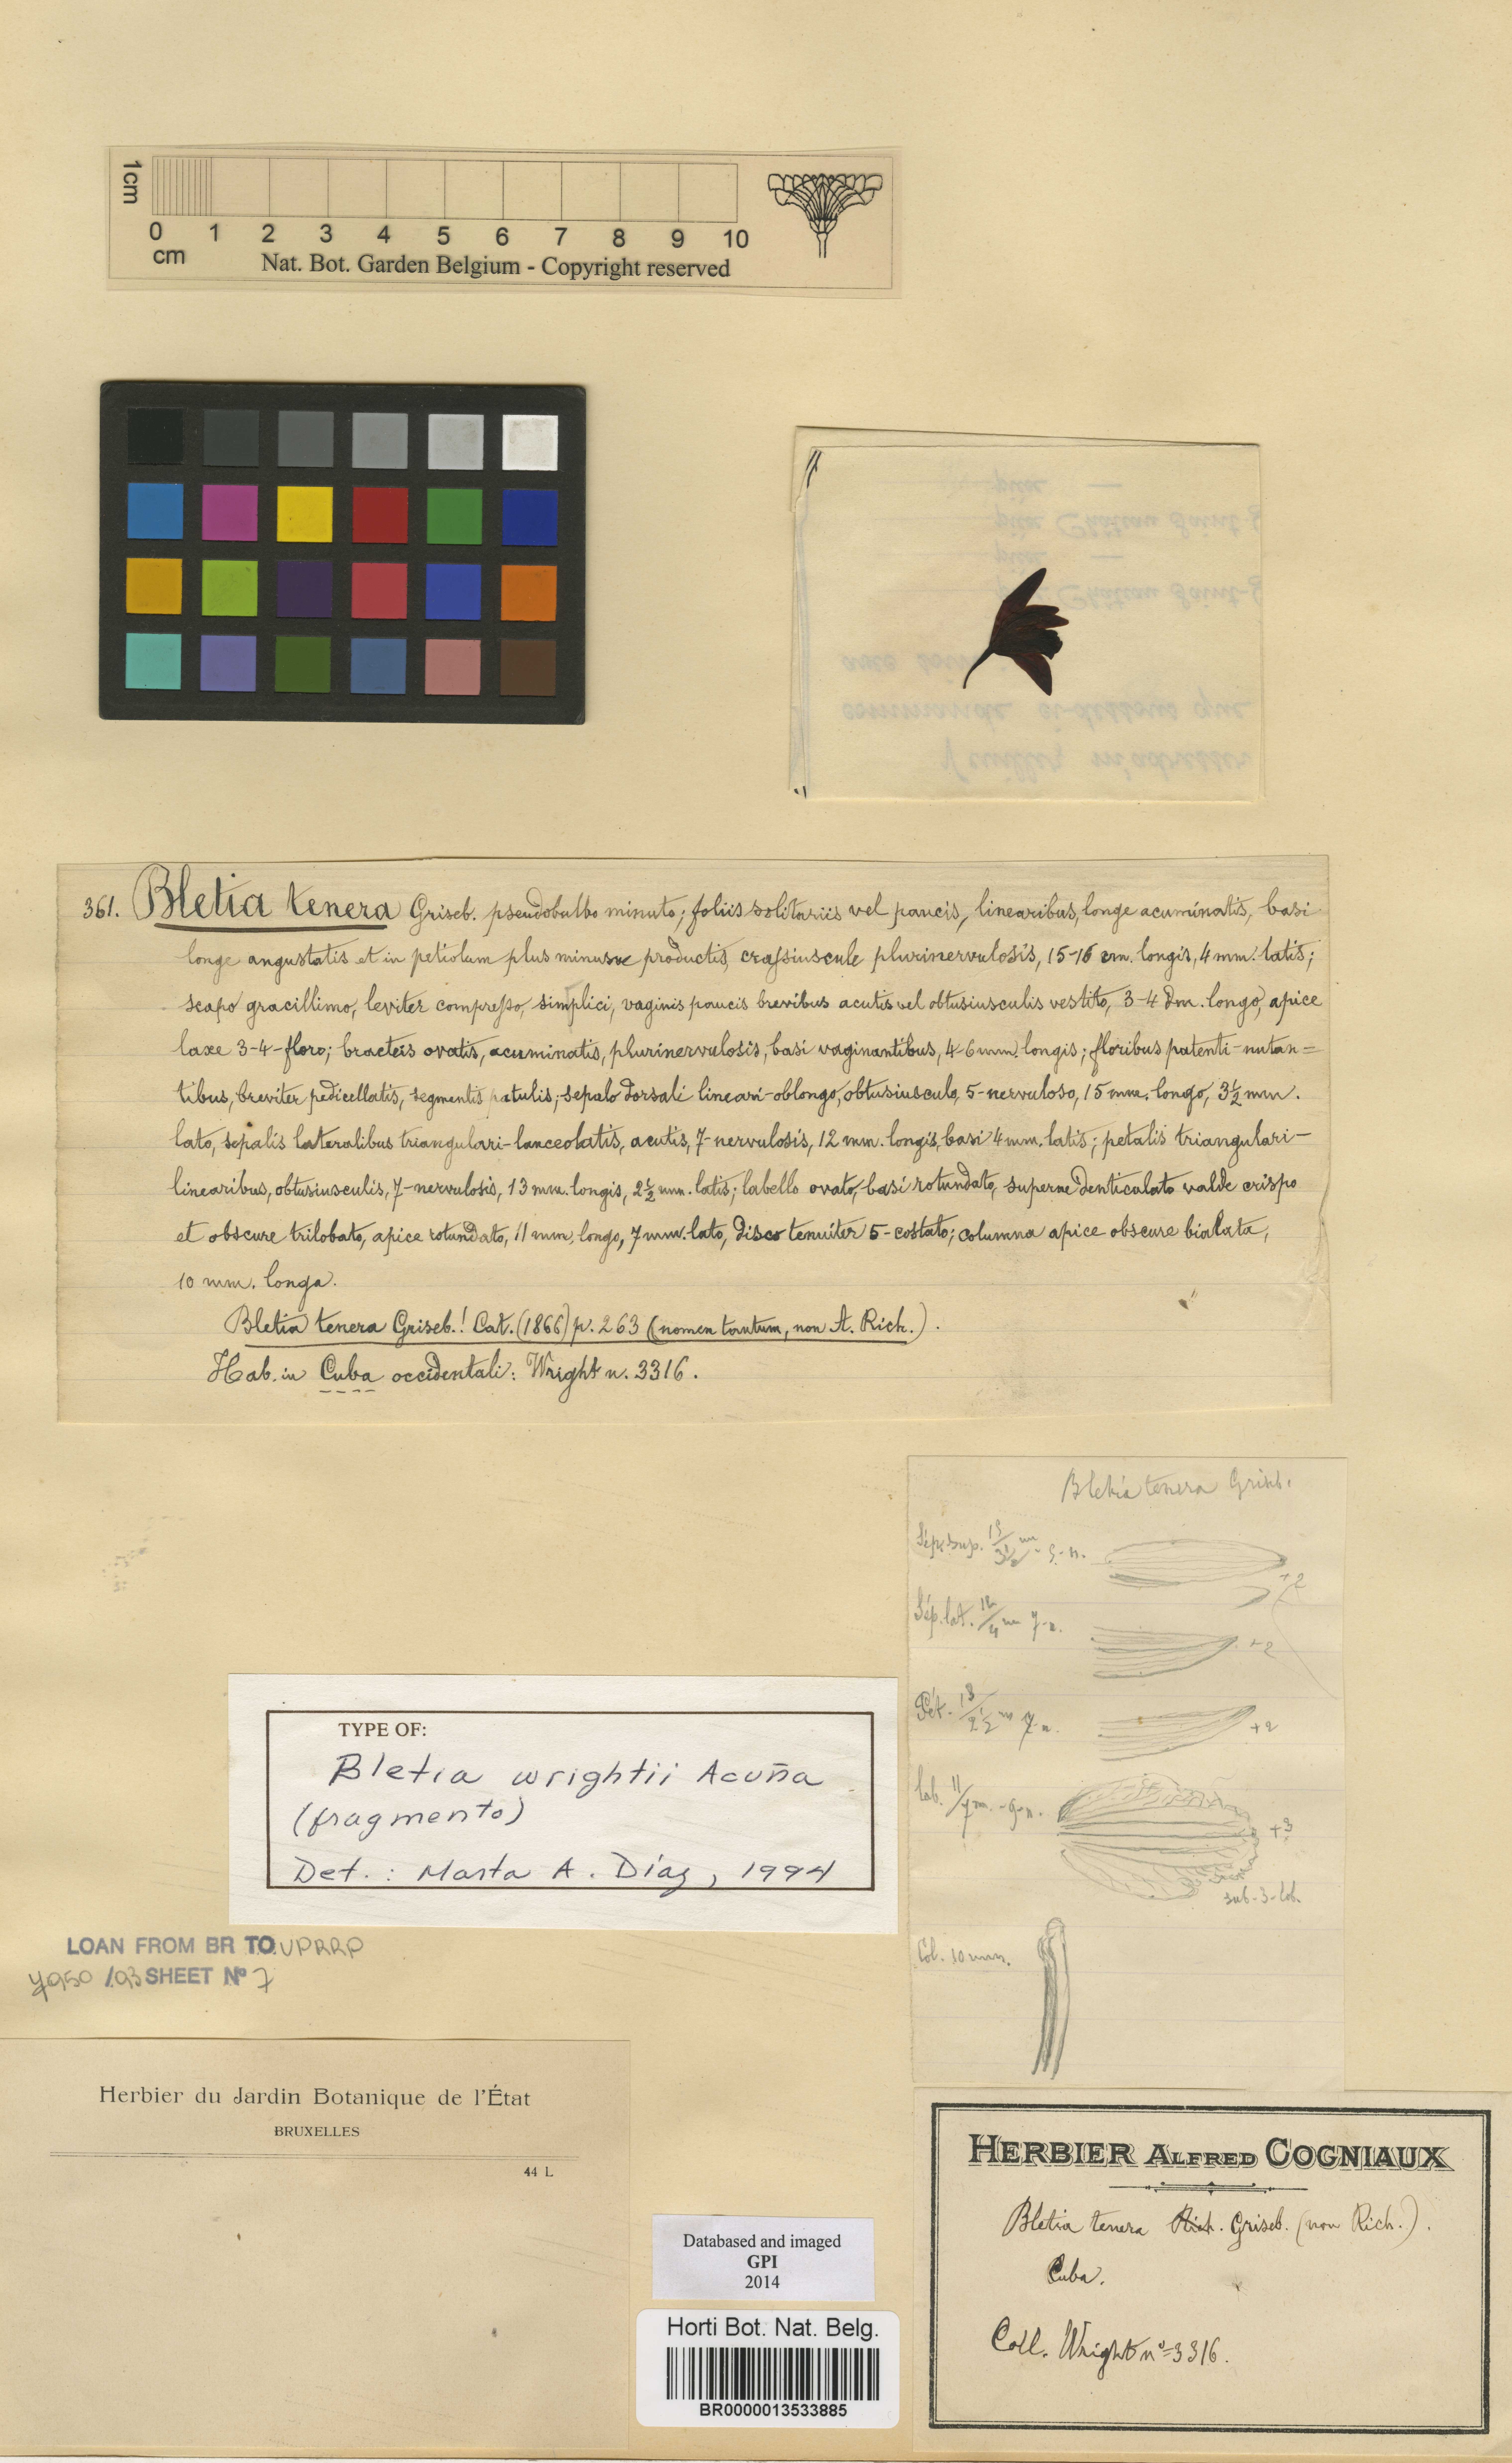 1cm
0 1 2 3 4 5 6 7 8 9 10
cm
Nat. Bot. Garden Belgium - Copyright reserved
361. Bletia tenera Griseb. pseudobulbo minuto; foliis solitariis vel paucis, linearibus, longe acuminatis, basi
longe angustatis et in petiolum plus minusve productis, crassiuscule plurinervulosis, 15-16 cm. longis, 4 mm. latis;
scapo gracillimo, leviter compresso, simplici, vaginis paucis brevibus acutis vel obtusiusculis vestito, 3-4 dm. longo, apice
laxe 3-4-floro; bracteis ovatis, acuminatis, plurinervulosis, basi vaginantibus, 4-6 mm. longis; floribus patenti-nutan=
tibus, breviter pedicellatis, segmentis patulis; sepalo dorsali lineari-oblongo, obtusiusculo, 5-nervuloso, 15 mm. longo, 3½ mm.
lato, sepalis lateralibus triangulari-lanceolatis, acutis, 7-nervulosis, 12 mm. longis, basi 4 mm. latis; petalis triangulari-
linearibus, obtusiusculis, 7-nervulosis, 13 mm. longis, 2½ mm. latis; labello ovato, basi rotundato, superne denticulato valde crispo
et obscure trilobato, apice rotundato, 11 mm. longo, 7 mm. lato, disco tenuiter 5-costato; columna apice obscure bialata,
10 mm. longa.
Bletia tenera Griseb.! Cat. (1866) p. 263 (nomen tantum, non A. Rich.).
Hab. in Cuba occidentali: Wright n. 3316.
Bletia tenera Griseb.
Sép. sup. 15/3½ m - 5-n.
+2
Sép. lat. 12/4 m 7-n.
+2
Pét. 13/2½ m 7-n.
+2
Lab. 11/7 m.
+3
sub-3-lob.
Col. 10 mm.
TYPE OF:
Bletia wrightii Acuña
(fragmento)
Det.: Marta A. Díaz, 1994
LOAN FROM BR TO UPRRP
/93 SHEET Nº 7
Herbier du Jardin Botanique de l'État
BRUXELLES
44 L
Databased and imaged
GPI
2014
Horti Bot. Nat. Belg.
BR0000013533885
HERBIER ALFRED COGNIAUX
Bletia tenera Rich. Griseb. (non Rich.).
Cuba.
Coll. Wright nº 3316.